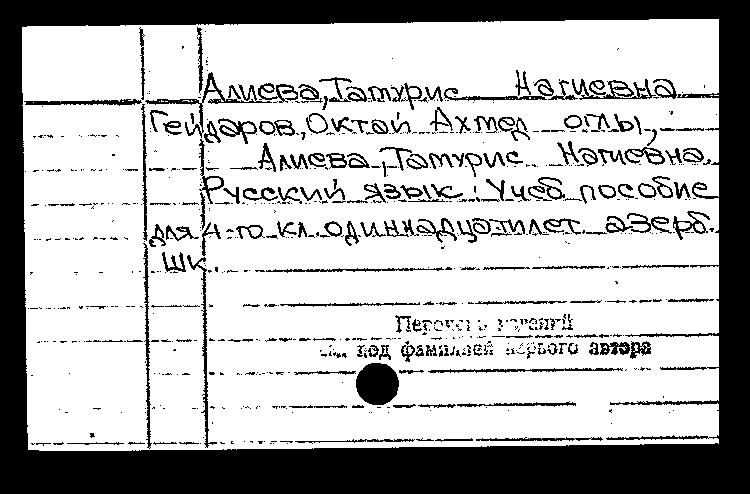 Алиева, Тамурис Нагиевна
Гейдаров, Октай Ахмед оглы,
Алиева, Тамурис Нагиевна.
Русский язык: Учеб пособие
для 4-го кл. одиннадцатилет. азерб.
шк.
Перечень изданий
см. под фамилией первого автора